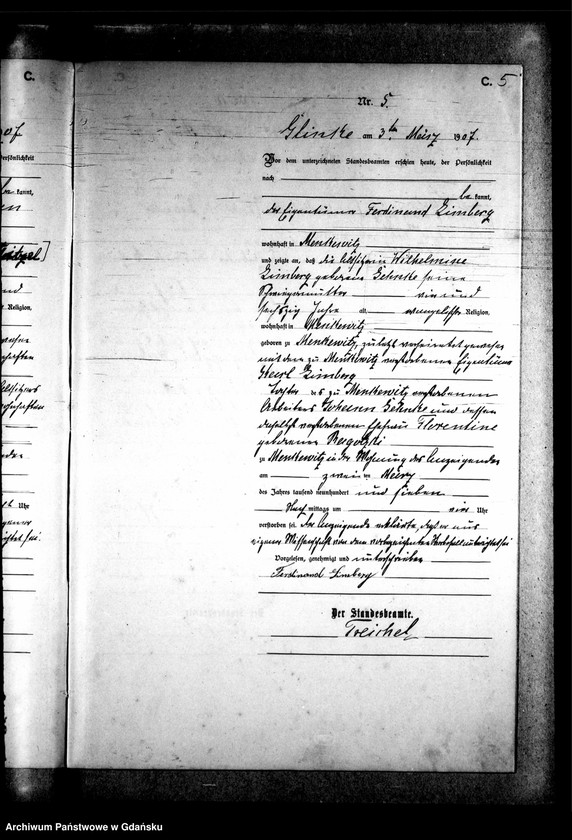 C.
C. 5
Nr. 5.
Glinke am 3ten März 1907.
Vor dem unterzeichneten Standesbeamten erschien heute, der Persönlichkeit
nach
be kannt,
der Eigentümer Ferdinand Zimberg
wohnhaft in Menkewitz
und zeigte an, daß die Altsitzerin Wilhelmine
Zimberg geborene Gehnke seine
Schwiegermutter vierund
sechszig Jahre alt, evangelischer Religion,
wohnhaft in Menkewitz
geboren zu Menkewitz, zuletzt verheiratet gewesen
mit dem zu Menkewitz verstorbenen Eigentümer
Karl Zimberg
Tochter des zu Menkewitz verstorbenen
Arbeiters Johann Gehnke und dessen
daselbst verstorbenen Ehefrau Florentine
geborene
zu Menkewitz in der Wohnung des Anzeigenden
am zweiten März
des Jahres tausend neunhundert und sieben
Nach mittags um ein Uhr
verstorben sei. Der Anzeigende erklärte, daß er aus
eigener Wissenschaft von dem vorbezeichneten Sterbefall unterrichtet sei
Vorgelesen, genehmigt und unterschrieben
Ferdinand Zimberg
Der Standesbeamte.
Treichel
07
Persönlichkeit
kannt,
Religion,
Uhr
Archiwum Państwowe w Gdańsku